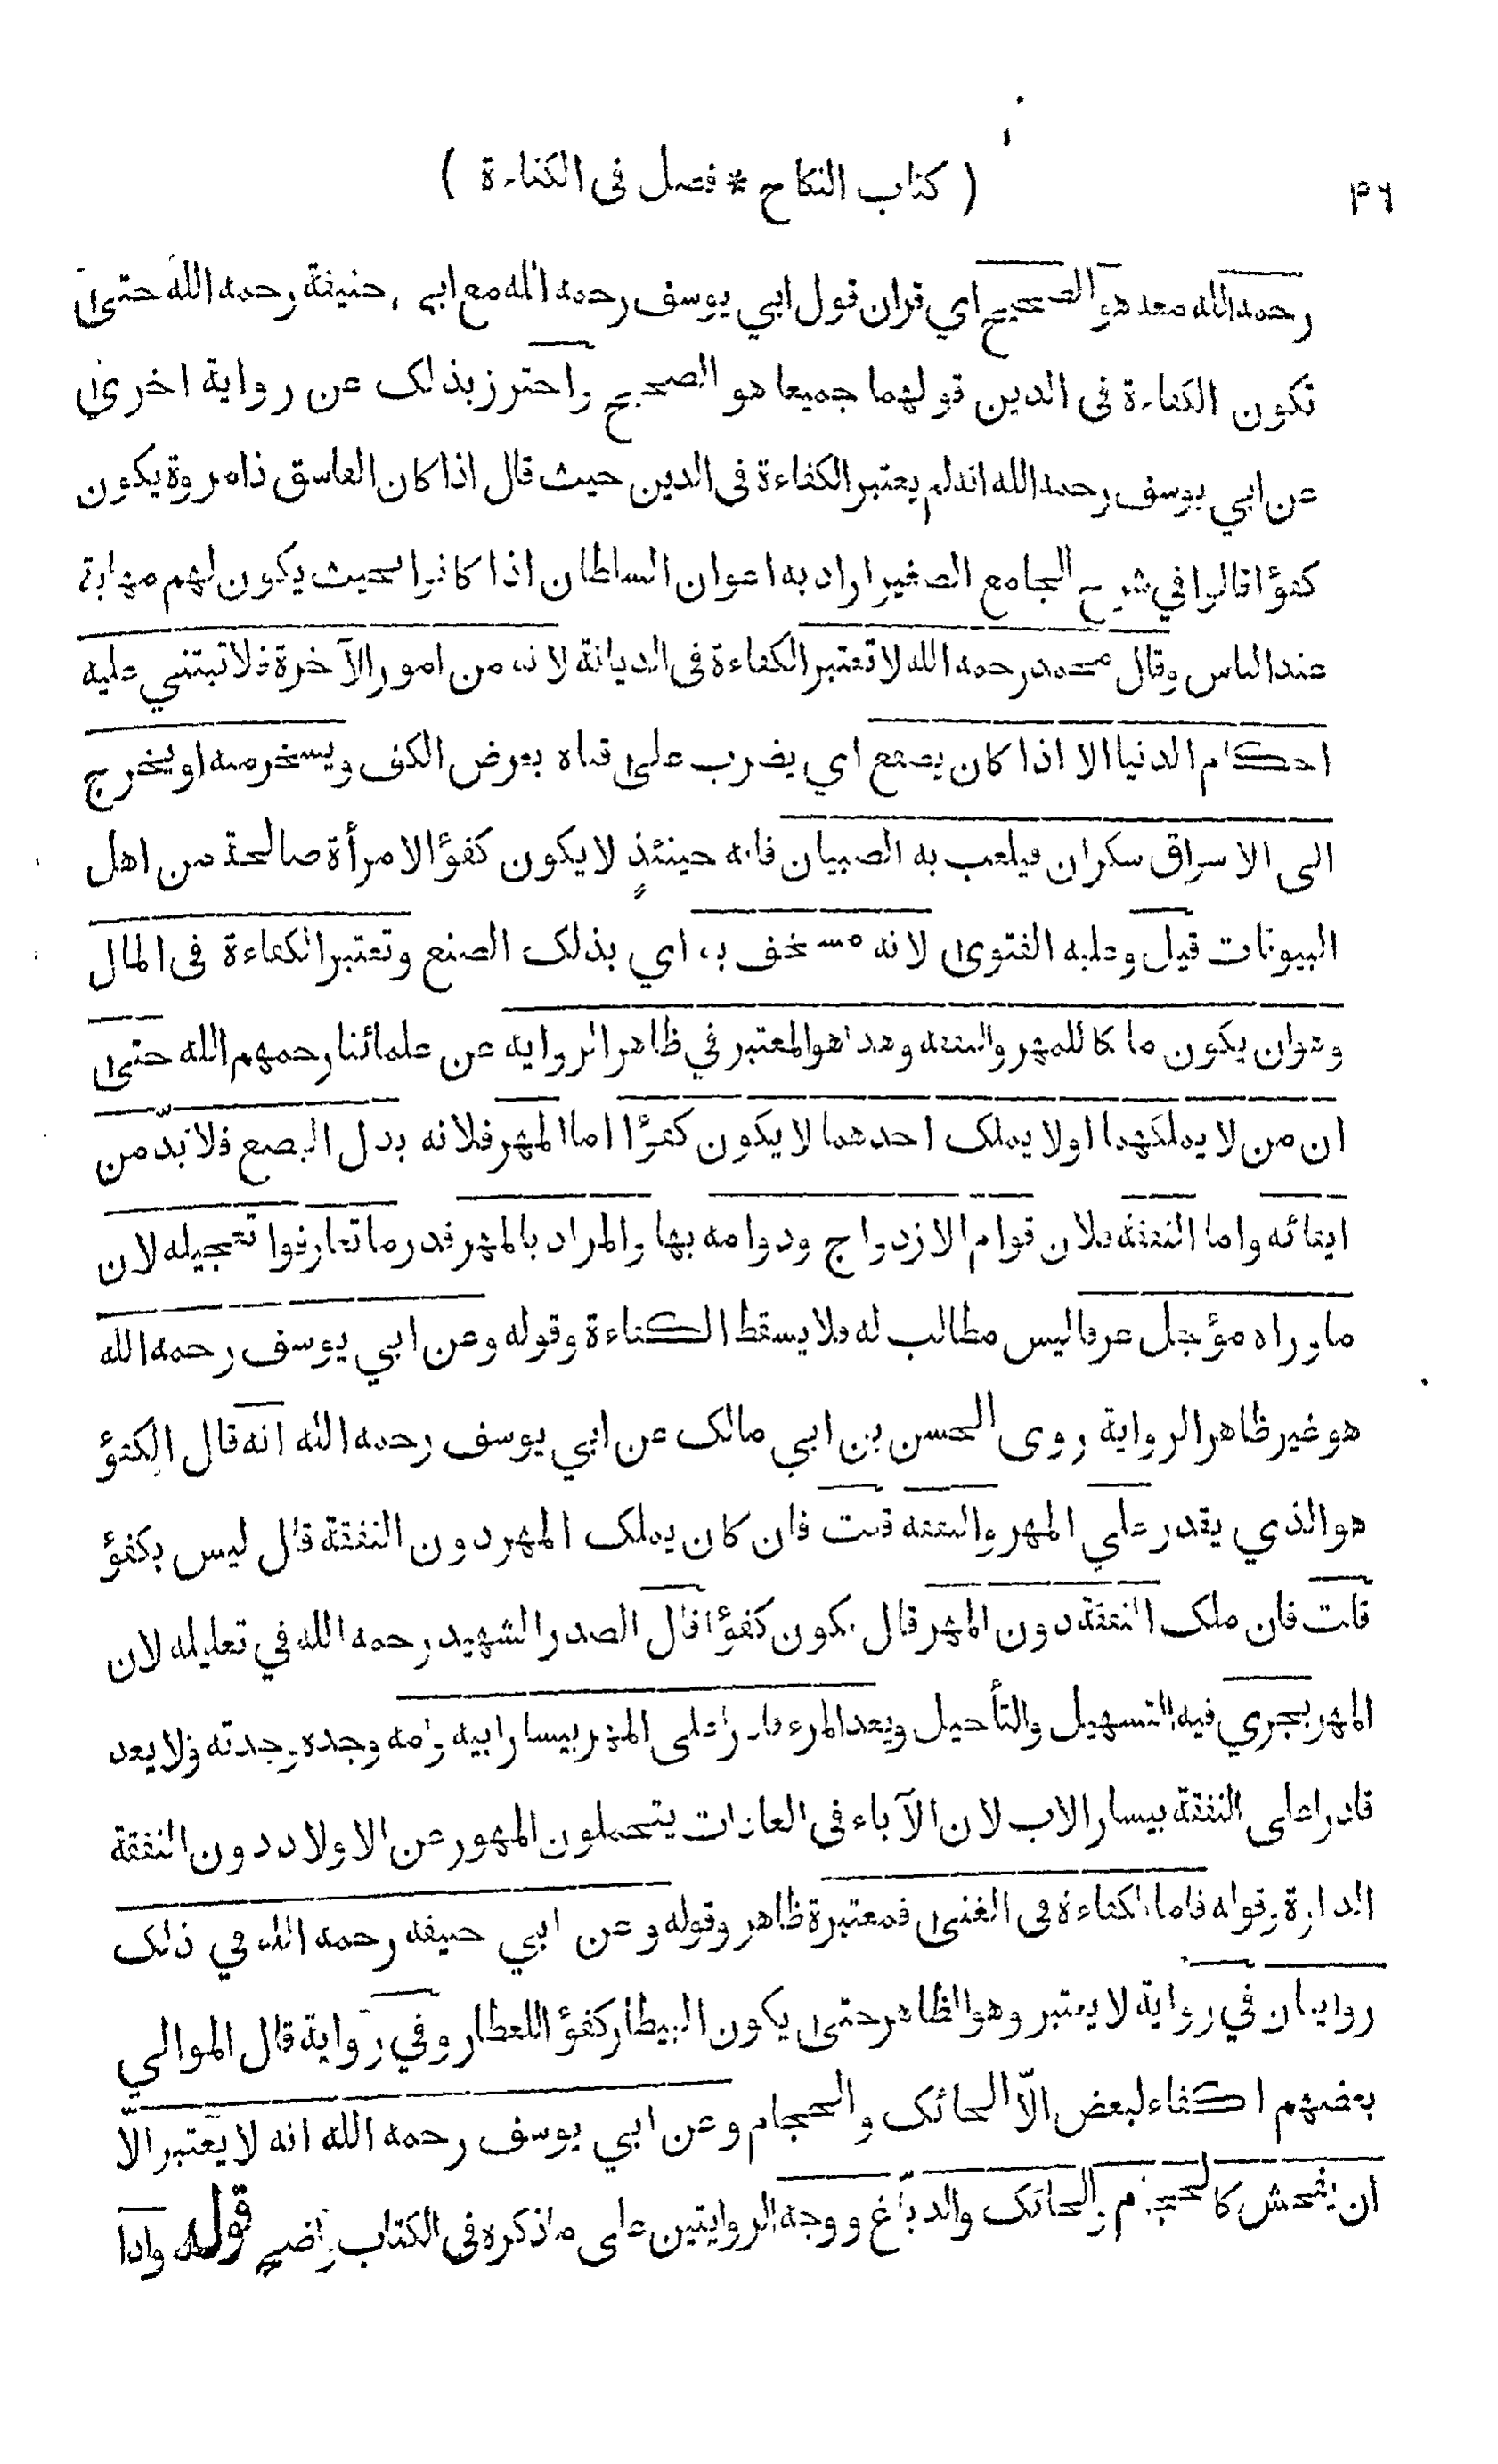 ٣٦ ( كتاب النكاح * فصل فى الكفاءة )
رحمه الله معه هو الصحيح اي قران قول ابي يوسف رحمه الله مع ابي حنيفة رحمه الله حتى
تكون الكفاءة فى الدين قولهما جميعا هو الصحيح واحترز بذلك عن رواية اخرى
عن ابي يوسف رحمه الله انه لم يعتبر الكفاءة فى الدين حيث قال اذا كان الفاسق ذا مروة يكون
كفؤا قالوا في شرح الجامع الصغير اراد به اعوان السلطان اذا كانوا بحيث يكون لهم مهابة
عند الناس وقال محمد رحمه الله لا تعتبر الكفاءة فى الديانة لانه من امور الآخرة فلا تبتني عليه
احكام الدنيا الا اذا كان يصفع اي يضرب على قفاه بعرض الكف ويسخر منه او يخرج
الى الاسواق سكران فيلعب به الصبيان فانه حينئذٍ لا يكون كفؤا لامرأة صالحة من اهل
البيوتات قيل وعليه الفتوى لانه مستخف به اي بذلك الصنع وتعتبر الكفاءة فى المال
وهو ان يكون مالكا للمهر والنفقه وهذا هو المعتبر في ظاهر الروايه عن علمائنا رحمهم الله حتى
ان من لا يملكهما او لا يملك احدهما لا يكون كفؤا اما المهر فلانه بدل البضع فلا بدّ من
ايفائه واما النفقة فلان قوام الازدواج ودوامه بها والمراد بالمهر قدر ما تعارفوا تعجيله لان
ماوراه مؤجل عرفا ليس مطالب له فلا يسقط الكفاءة وقوله وعن ابي يوسف رحمه الله
هو غير ظاهر الرواية روى الحسن بن ابي مالك عن ابي يوسف رحمه الله انه قال الكفؤ
هو الذي يقدر علي المهر والنفقه قلت فان كان يملك المهر دون النفقة قال ليس بكفؤ
قلت فان ملك النفقة دون المهر قال يكون كفؤا قال الصدر الشهيد رحمه الله في تعليله لان
المهر يجري فيه التسهيل والتأجيل ويعد المرء قادرا على المهر بيسار ابيه وامه وجده وجدته ولا يعد
قادرا على النفقة بيسار الاب لان الآباء فى العادات يتحملون المهور عن الاولاد دون النفقة
الدارة وقوله فاما الكفاءة فى الغنى فمعتبرة ظاهر وقوله وعن ابي حنيفه رحمه الله في ذلك
روايتان في رواية لا يعتبر وهو الظاهر حتى يكون البيطار كفؤا للعطار وفي رواية قال الموالي
بعضهم اكفاء لبعض الّا الحائك والحجام وعن ابي يوسف رحمه الله انه لا يعتبر الّا
ان يفحش كالحجام والحائك والدبّاغ ووجه الروايتين على ما ذكره فى الكتاب واضح قوله واذا